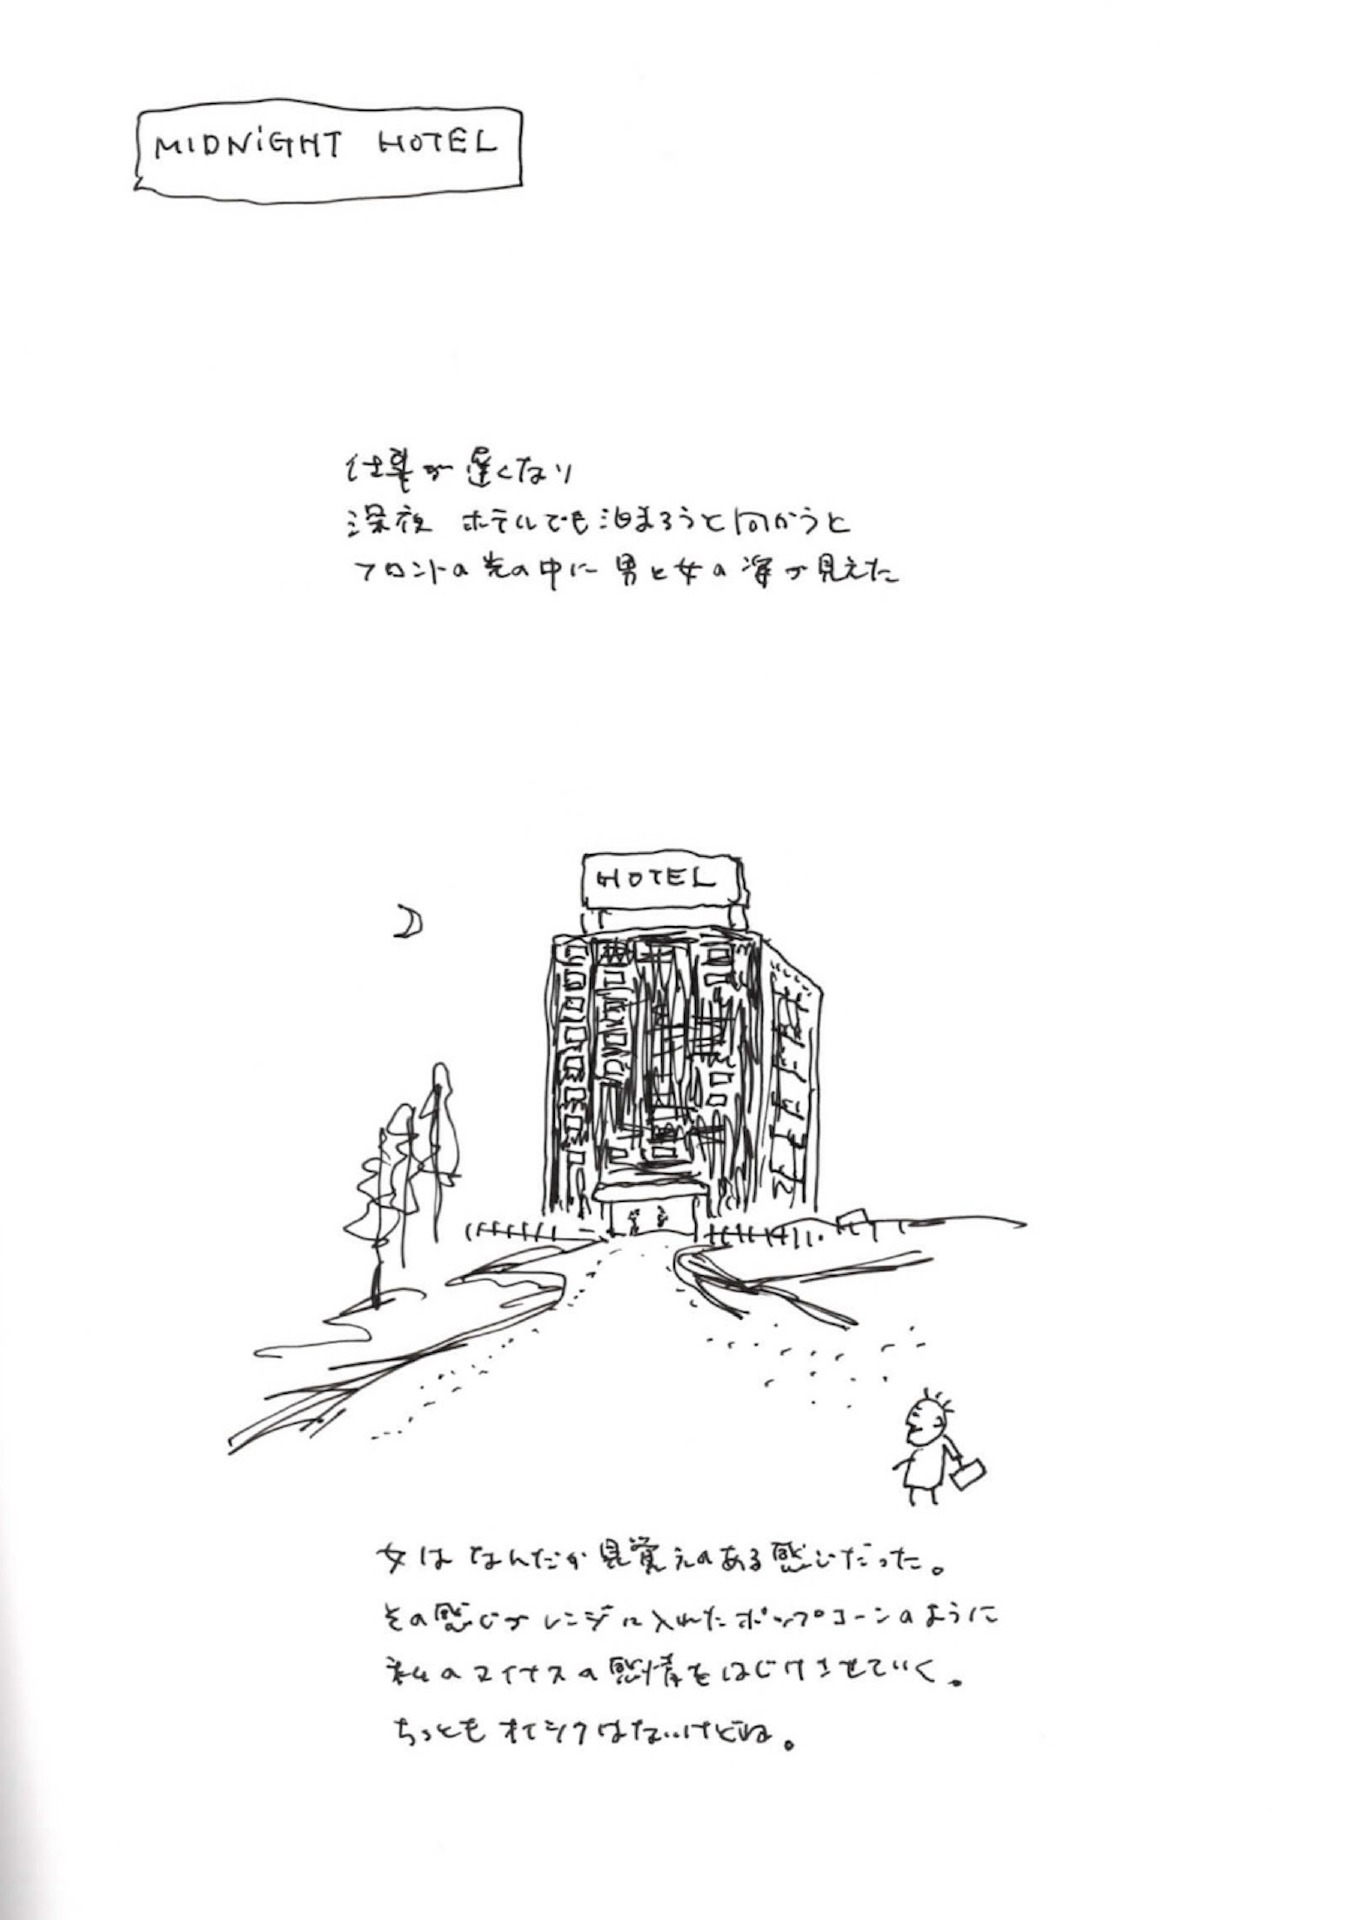 MIDNiGHT HOTEL
仕事が遅くなり
深夜 ホテルでも泊まろうと向かうと
フロントの光の中に男と女の姿が見えた
HOTEL
女はなんだか見覚えのある感じだった。
その感じがレンジに入れたポップコーンのように
私のマイナスの感情をはじけさせていく。
ちっともオイシクはないけどね。